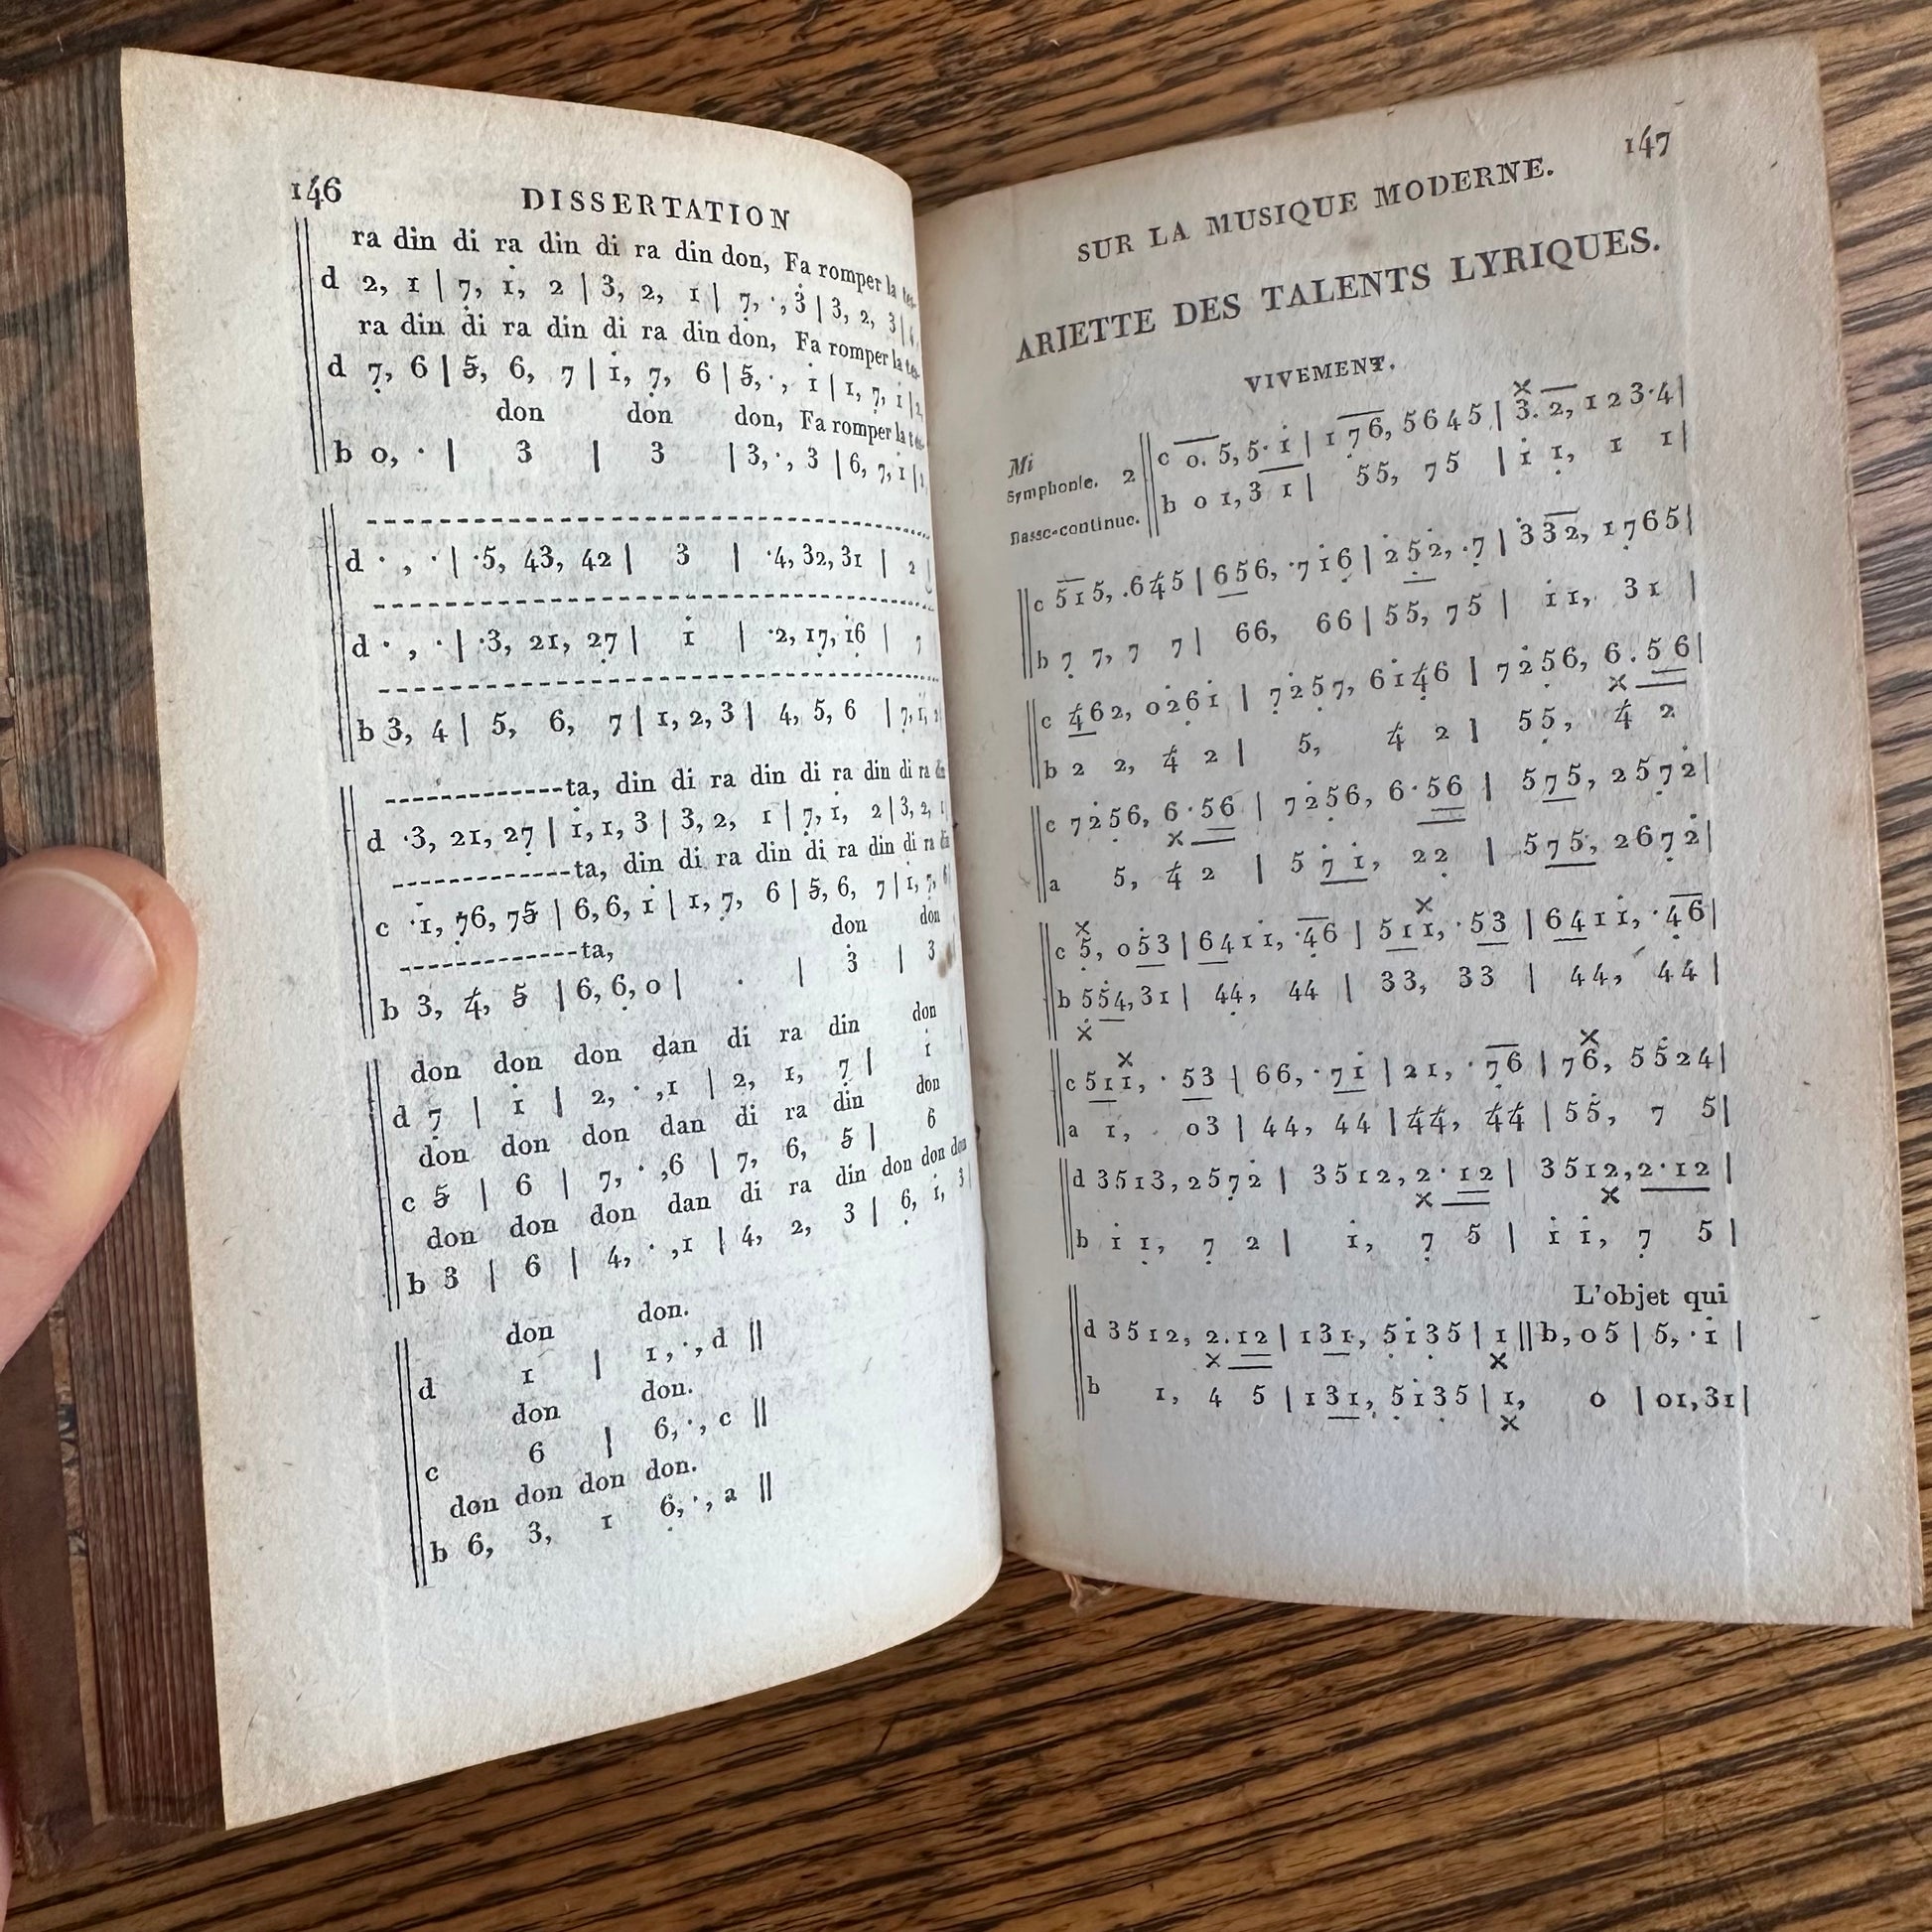 146 DISSERTATION
ra din di ra din di ra din don, Fa romper la
d 2, 1 | 7̣, 1̇, 2 | 3, 2, 1 | 7̣, ·, 3̇ | 3, 2, 3 |
ra din di ra din di ra din don, Fa romper la
d 7̣, 6 | 5̷, 6, 7 | 1̇, 7̣, 6 | 5̷, ·, 1̇ | 1, 7̣, 1̇ |
don don don, Fa romper la
b 0, · | 3 | 3 | 3, ·, 3 | 6, 7, 1̇ |
d · , · | ·5, 43, 42 | 3 | ·4, 32, 31 | 2
d · , · | ·3, 21, 27̣ | 1̇ | ·2, 17̣, 1̇6̣ | 7
b 3, 4 | 5, 6, 7 | 1, 2, 3 | 4, 5, 6 | 7, 1,
------------ta, din di ra din di ra din di ra
d ·3, 21, 27̣ | 1̇, 1, 3 | 3, 2, 1 | 7̣, 1̇, 2 | 3, 2,
------------ta, din di ra din di ra din di ra
c ·1̇, 7̣6, 75̷ | 6, 6, 1̇ | 1, 7̣, 6 | 5̷, 6, 7 | 1, 7,
------------ta, don don
b 3, 4̷, 5̷ | 6, 6̣, 0 | · | 3̇ | 3
don don don dan di ra din don
d 7̣ | 1̇ | 2, · ,1 | 2, 1, 7̣ | 1
don don don dan di ra din don
c 5̷ | 6 | 7, · ,6 | 7, 6, 5̷ | 6
don don don dan di ra din don don don
b 3 | 6 | 4, · ,1 | 4, 2, 3 | 6̣, 1̇, 3
don don.
d 1 | 1, ·, d ||
don don.
c 6 | 6, ·, c ||
don don don don.
b 6, 3, 1 6̣, ·, a ||
SUR LA MUSIQUE MODERNE. 147
ARIETTE DES TALENTS LYRIQUES.
VIVEMENT.
Mi
Symphonie. 2 c 0. 5, 5· 1̇ | 1 7 6, 5 6 4 5 | 3. 2, 1 2 3·4 |
Basse-continue. b 0 1, 3 1 | 5 5, 7 5 | 1̇ 1̣, 1 1 |
c 5 1 5, .6 4̷ 5 | 6 5 6, ·7 1̇ 6̣ | 2 5̇ 2, ·7̇ | 3̇ 3 2, 1 7̣ 6 5 |
b 7̣ 7, 7 7 | 6 6, 6 6 | 5 5, 7 5 | 1̇ 1, 3 1 |
c 4̷ 6 2, 0 2̇ 6̣ 1̇ | 7̣ 2̇ 5̣ 7, 6 1̇ 4̷ 6 | 7 2̇ 5̣ 6, 6 . 5 6 |
b 2 2, 4̷ 2 | 5, 4̷ 2 | 5 5̣, 4̷ 2
c 7 2̇ 5̣ 6, 6 · 5 6 | 7 2̇ 5 6, 6 · 5 6 | 5 7 5, 2 5 7̣ 2̇ |
a 5, 4̷ 2 | 5 7̇ 1̇, 2 2̣ | 5 7 5, 2 6 7̣ 2̇ |
c 5̣, 0 5̇ 3 | 6 4 1 1̇, ·4 6 | 5 1 1̇, · 5 3 | 6 4 1 1̇, · 4 6 |
b 5 5̇ 4, 3 1 | 4 4̣, 4 4 | 3 3, 3 3 | 4 4, 4 4 |
c 5 1 1̇, · 5 3 | 6 6, · 7 1̇ | 2 1, · 7 6 | 7 6̣, 5 5̇ 2 4 |
a 1̇, 0 3 | 4 4, 4 4 | 4̷ 4̷, 4̷ 4̷ | 5 5̇, 7 5 |
d 3 5 1 3, 2 5 7̣ 2̇ | 3 5 1 2, 2 · 1 2 | 3 5 1 2, 2 · 1 2 |
b 1̇ 1̣, 7̣ 2 | 1̇, 7̣ 5 | 1̇ 1̇, 7̣ 5 |
L'objet qui
d 3 5 1 2, 2 . 1 2 | 1 3 1, 5̣ 1̇ 3̣ 5 | 1 || b, 0 5 | 5, · 1̇ |
b 1, 4 5 | 1 3 1, 5̣ 1̇ 3̣ 5 | 1, 0 | 01, 31 |